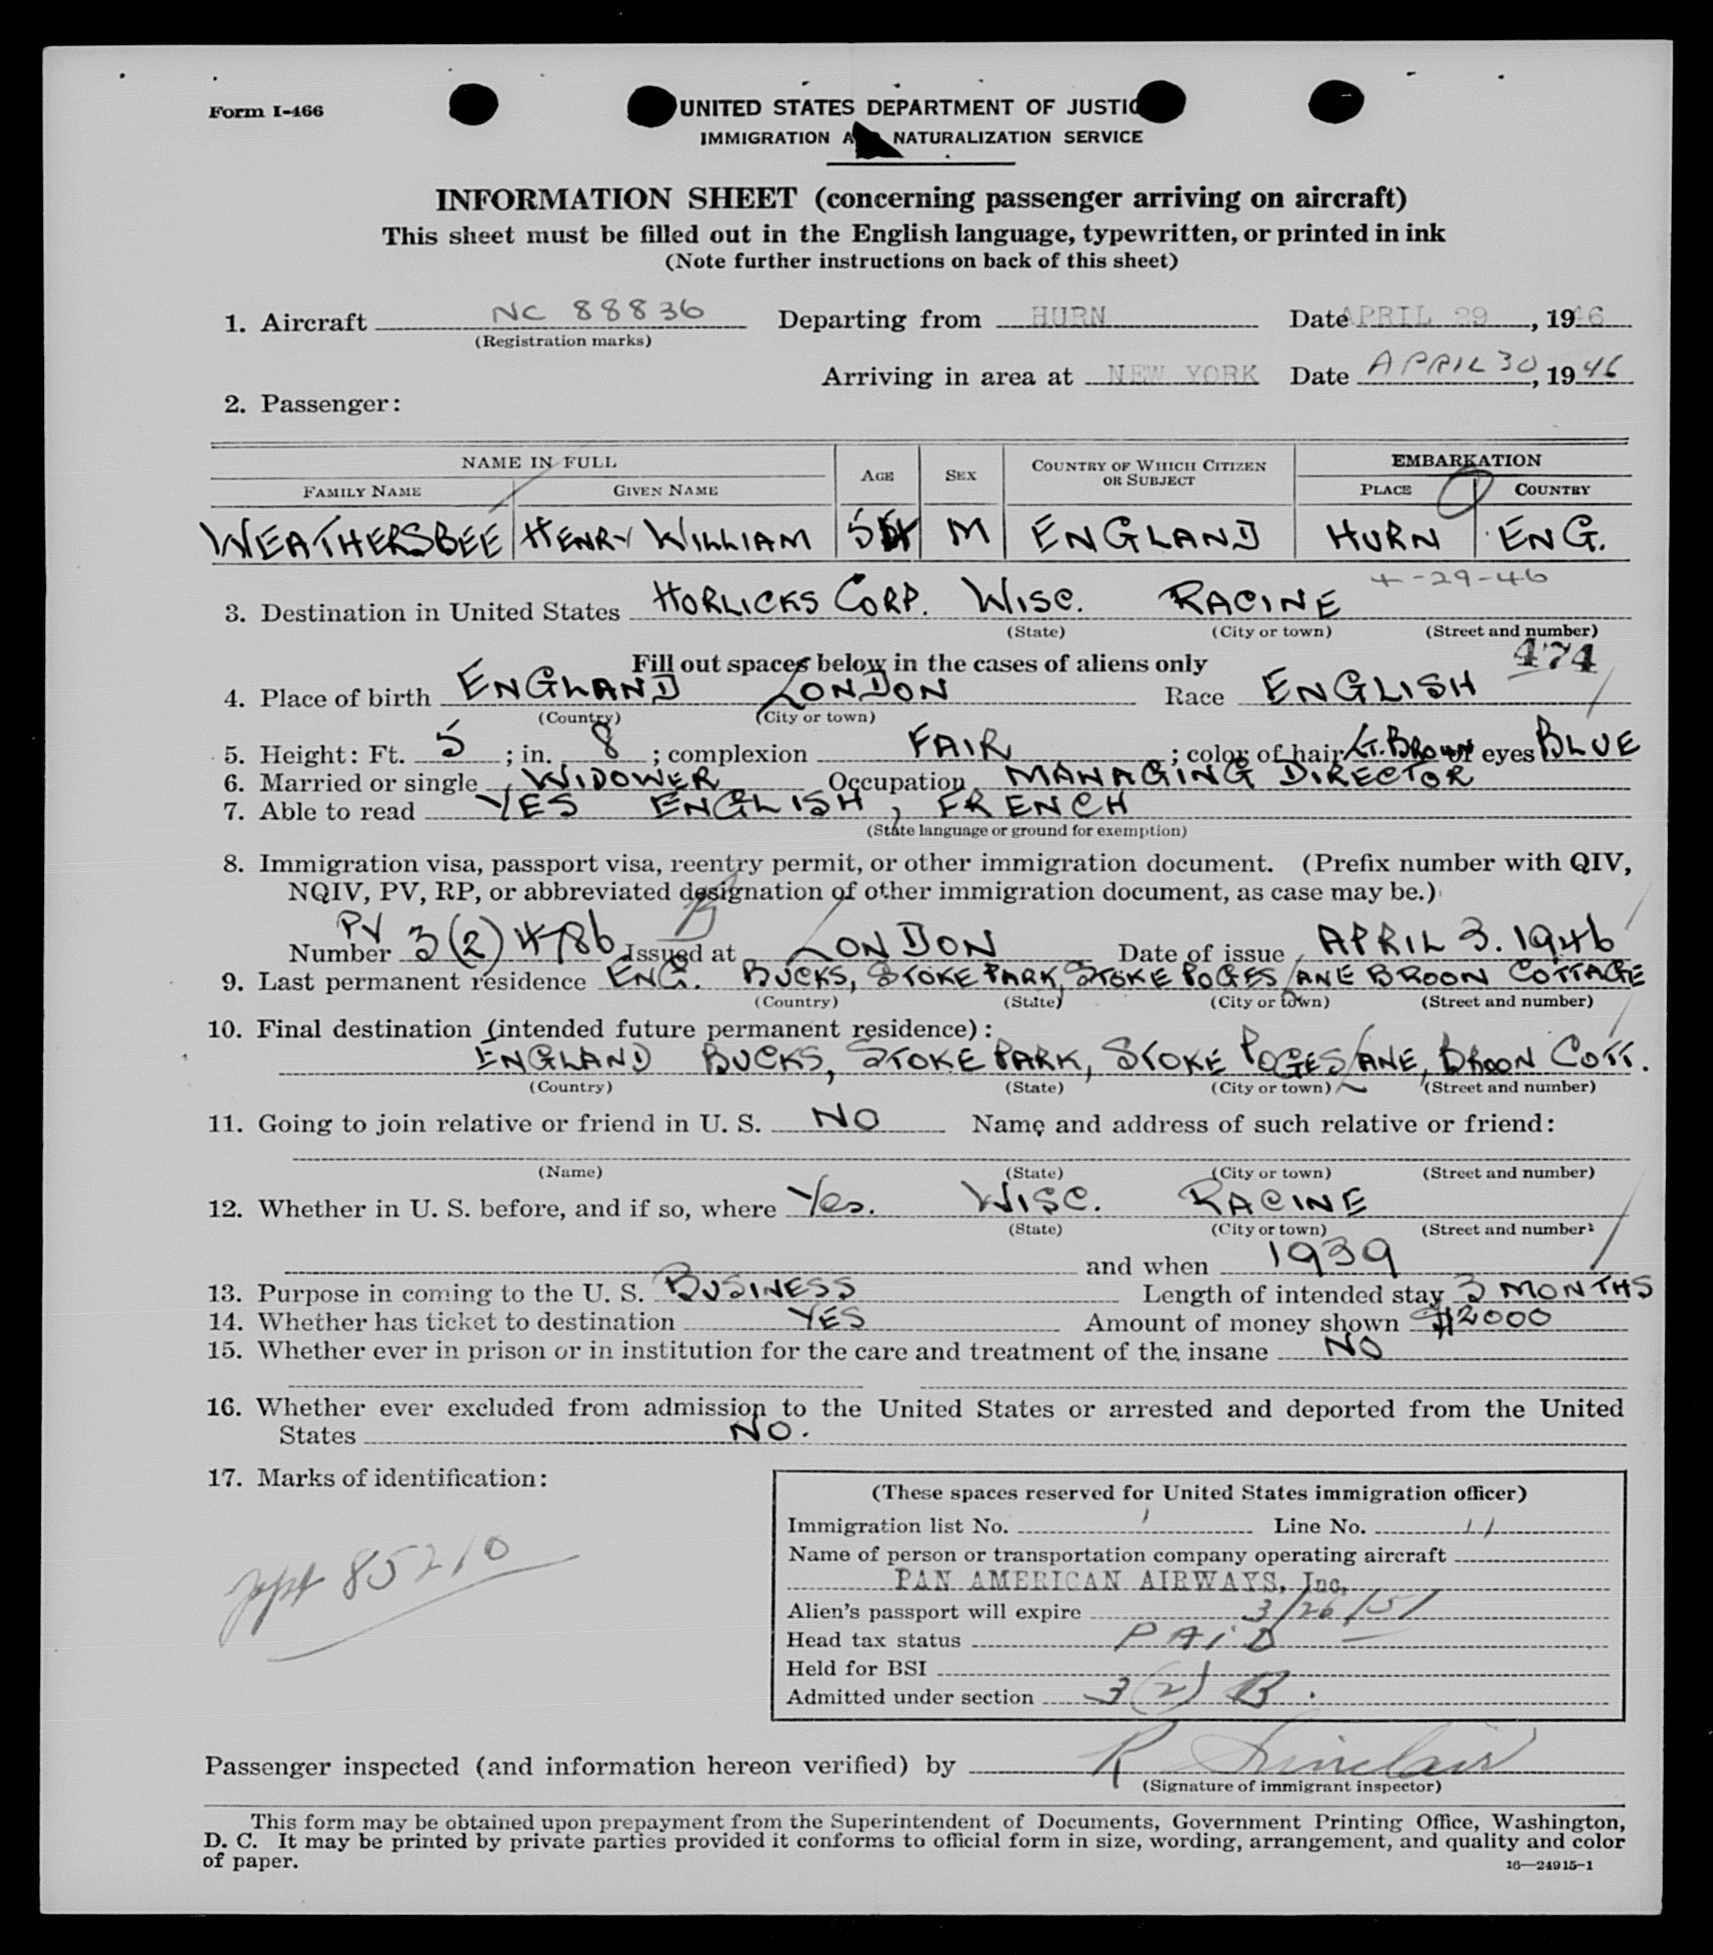 Form I-466
UNITED STATES DEPARTMENT OF JUSTIC
IMMIGRATION A NATURALIZATION SERVICE
INFORMATION SHEET (concerning passenger arriving on aircraft)
This sheet must be filled out in the English language, typewritten, or printed in ink
(Note further instructions on back of this sheet)
1. Aircraft NC 88836 Departing from HURN Date APRIL 29, 1946
(Registration marks)
Arriving in area at NEW YORK Date APRIL 30, 1946
2. Passenger:
NAME IN FULL AGE SEX COUNTRY OF WHICH CITIZEN OR SUBJECT EMBARKATION
FAMILY NAME GIVEN NAME PLACE COUNTRY
WEATHERSBEE HENRY WILLIAM M ENGLAND HURN ENG.
4-29-46
3. Destination in United States HORLICKS CORP. WISC. RACINE
(State) (City or town) (Street and number)
474
Fill out spaces below in the cases of aliens only
4. Place of birth ENGLAND LONDON Race ENGLISH
(Country) (City or town)
5. Height: Ft. 5; in. 8; complexion FAIR; color of hair LT. BROWN eyes BLUE
6. Married or single WIDOWER Occupation MANAGING DIRECTOR
7. Able to read YES ENGLISH, FRENCH
(State language or ground for exemption)
8. Immigration visa, passport visa, reentry permit, or other immigration document. (Prefix number with QIV,
NQIV, PV, RP, or abbreviated designation of other immigration document, as case may be.)
PV B
Number 3(2) 4786 Issued at LONDON Date of issue APRIL 3. 1946
9. Last permanent residence ENG. BUCKS, STOKE PARK, STOKE POGES LANE BROON COTTAGE
(Country) (State) (City or town) (Street and number)
10. Final destination (intended future permanent residence):
ENGLAND BUCKS, STOKE PARK, STOKE POGES LANE, BROON COTT.
(Country) (State) (City or town) (Street and number)
11. Going to join relative or friend in U. S. NO Name and address of such relative or friend:
(Name) (State) (City or town) (Street and number)
12. Whether in U. S. before, and if so, where Yes. WISC. RACINE
(State) (City or town) (Street and number)
and when 1939
13. Purpose in coming to the U. S. BUSINESS Length of intended stay 3 MONTHS
14. Whether has ticket to destination YES Amount of money shown $2000
15. Whether ever in prison or in institution for the care and treatment of the insane NO
16. Whether ever excluded from admission to the United States or arrested and deported from the United
States NO.
17. Marks of identification:
ppt 85210
(These spaces reserved for United States immigration officer)
Immigration list No. 1 Line No. 11
Name of person or transportation company operating aircraft
PAN AMERICAN AIRWAYS, Inc.
Alien's passport will expire 3/26/51
Head tax status PAID
Held for BSI
Admitted under section 3(2) B.
Passenger inspected (and information hereon verified) by R Sinclair
(Signature of immigrant inspector)
This form may be obtained upon prepayment from the Superintendent of Documents, Government Printing Office, Washington,
D. C. It may be printed by private parties provided it conforms to official form in size, wording, arrangement, and quality and color
of paper.
16—24915-1